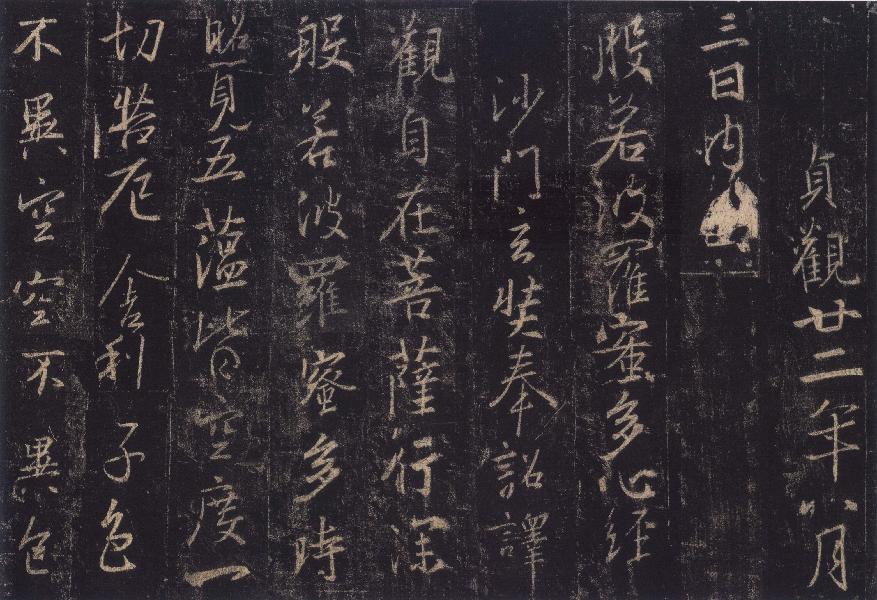 貞觀廿二年八月
三日內
般若波羅蜜多心經
沙門玄奘奉詔譯
觀自在菩薩行深
般若波羅蜜多時
照見五蘊皆空度一
切苦厄舍利子色
不異空空不異色